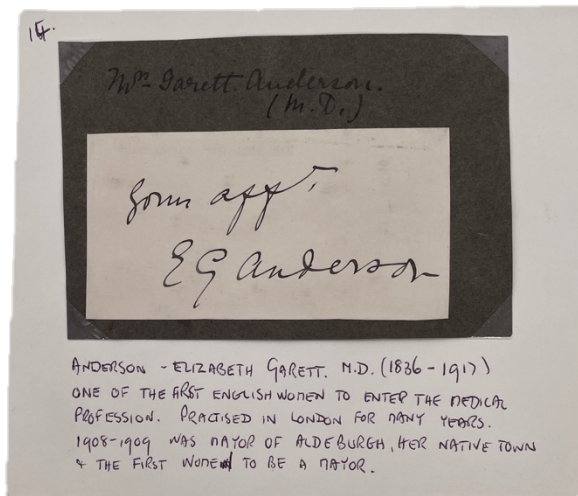 14.
Mrs Garett Anderson.
(M.D.)
Yours affly
E G Anderson
ANDERSON - ELIZABETH GARETT. M.D. (1836-1917)
ONE OF THE FIRST ENGLISH WOMEN TO ENTER THE MEDICAL
PROFESSION. PRACTISED IN LONDON FOR MANY YEARS.
1908-1909 WAS MAYOR OF ALDEBURGH, HER NATIVE TOWN
& THE FIRST WOMEN TO BE A MAYOR.